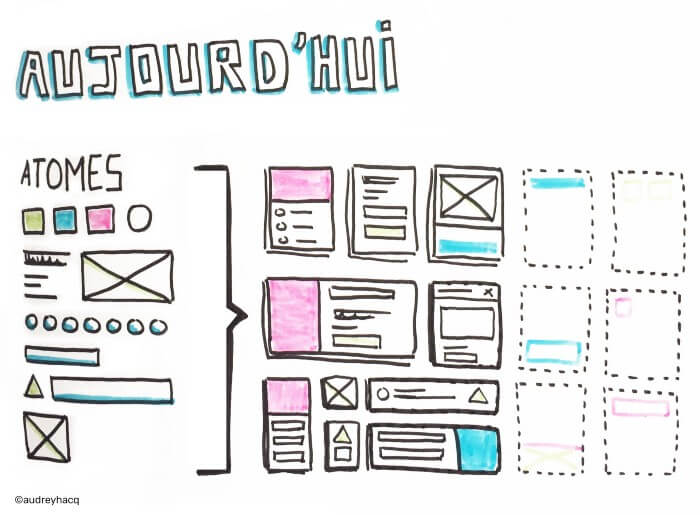 AUJOURD'HUI
ATOMES
©audreyhacq